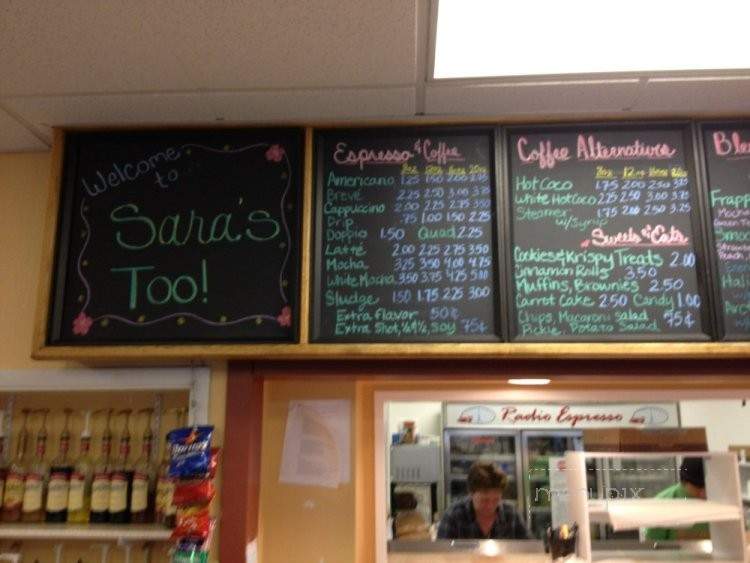 Welcome
to...
Sara's
Too!
Espresso & Coffee
8oz 12oz 16oz 20oz
Americano 1.25 1.50 2.00 2.75
Breve 2.25 2.50 3.00 3.75
Cappuccino 2.00 2.25 2.75 3.50
Drip .75 1.00 1.50 2.25
Doppio 1.50 Quad 2.25
Latte 2.00 2.25 2.75 3.50
Mocha 3.25 3.50 4.00 4.75
White Mocha 3.50 3.75 4.25 5.00
Sludge 1.50 1.75 2.25 3.00
Extra flavor 50¢
Extra Shot, soy 75¢
Coffee Alternatives
8oz 12oz 16oz 20oz
Hot Coco 1.75 2.00 2.50 3.25
White Hot Coco 2.25 2.50 3.00 3.75
Steamer 1.75 2.00 2.50 3.25
w/Syrup
Sweets & Eats
Cookies & Krispy Treats 2.00
Cinnamon Rolls 3.50
Muffins, Brownies 2.50
Carrot Cake 2.50 Candy 1.00
Chips, Macaroni Salad 75¢
Pickle, Potato Salad
Ble
Frapp
Radio Espresso
menupix